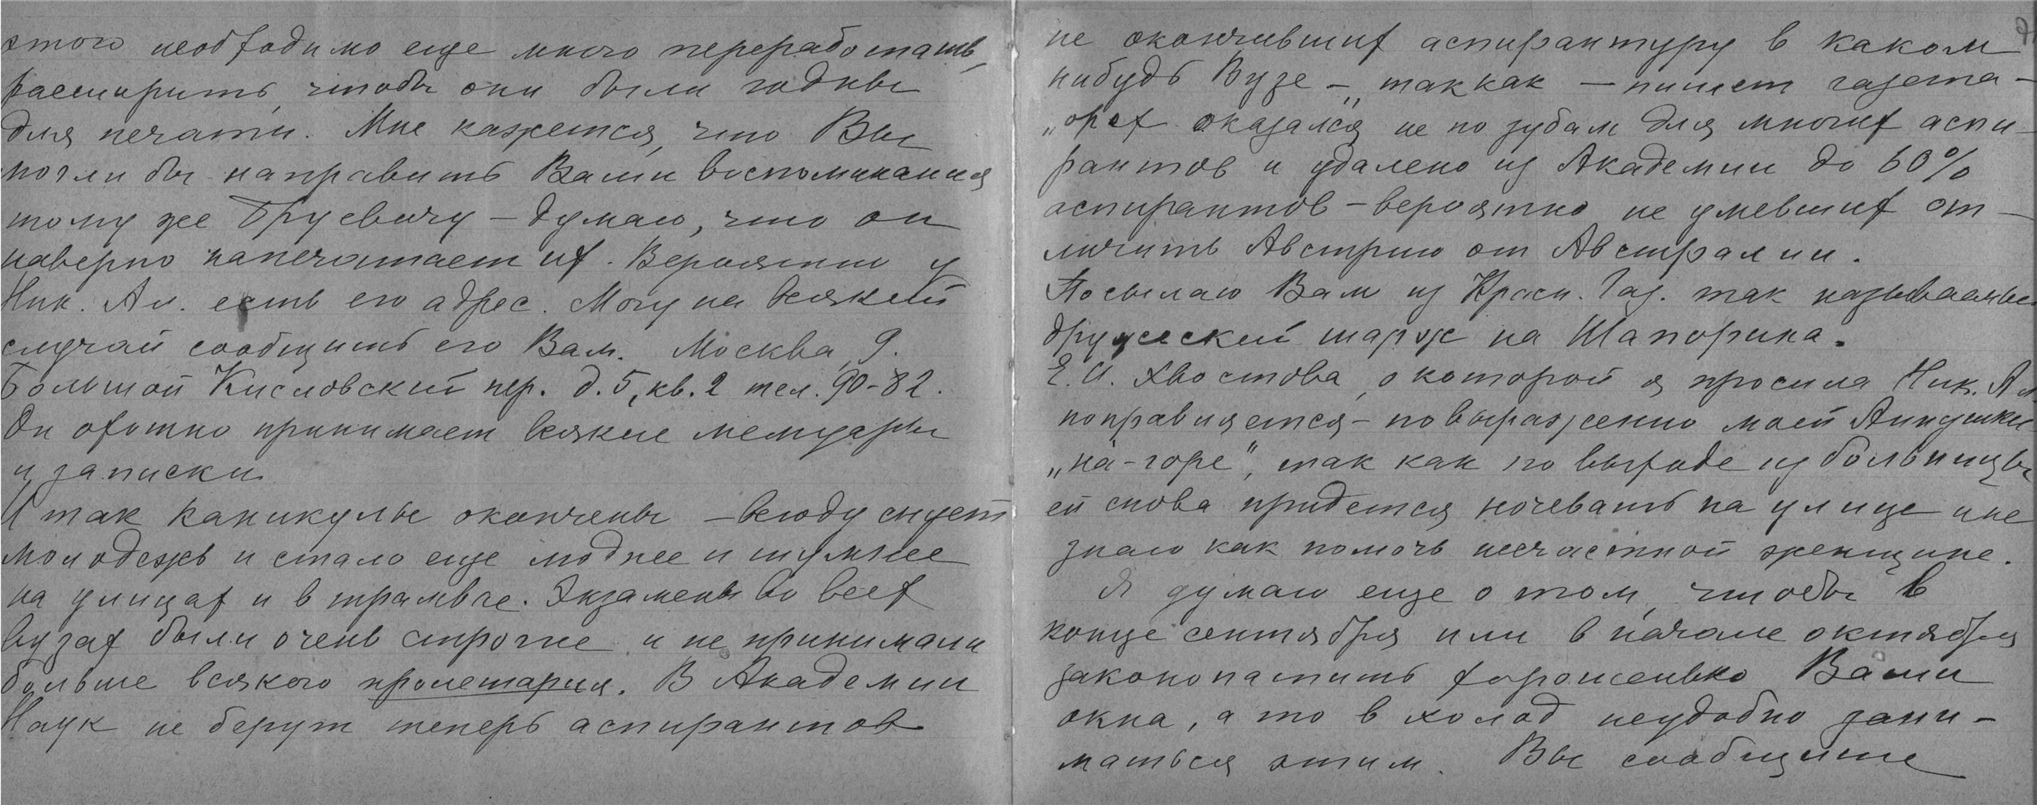 этого необходимо еще много переработать,
расширить, чтобы они были годны
для печати. Мне кажется, что Вы
могли бы направить Ваши воспоминания
тому же Бруевичу – думаю, что он
наверно напечатает их. Вероятно у
Ник. Ал. есть его адрес. Могу на всякий
случай сообщить его Вам. Москва, 9.
Большой Кисловский пер. д. 5, кв. 2 тел. 90-82.
Он охотно принимает всякие мемуары
и записки.
И так каникулы окончены – всюду снует
молодежь и стало еще моднее и шумнее
на улицах и в трамвае. Экзамены во всех
вузах были очень строгие и не принимали
больше всякого пролетария. В Академии
Наук не берут теперь аспирантов
не окончивших аспирантуру в каком
нибудь Вузе – „так как – пишет газета –
„орех оказался не по зубам для многих аспи-
рантов и удалено из Академии до 60%
аспирантов – вероятно не умевших от-
личить Австрию от Австралии.
Посылаю Вам из Красн. Газ. так называемый
дружеский шарж на Шапорина.
Е. И. Хвостова, о которой я просила Ник. Ал.
поправляется – по выражению моей Аннушки
„на-горе", так как по выходе из больницы
ей снова придется ночевать на улице и не
знаю как помочь несчастной женщине.
Я думаю еще о том, чтобы в
конце сентября или в начале октября
законопатить хорошенько Ваши
окна, а то в холод неудобно зани-
маться этим. Вы сообщите